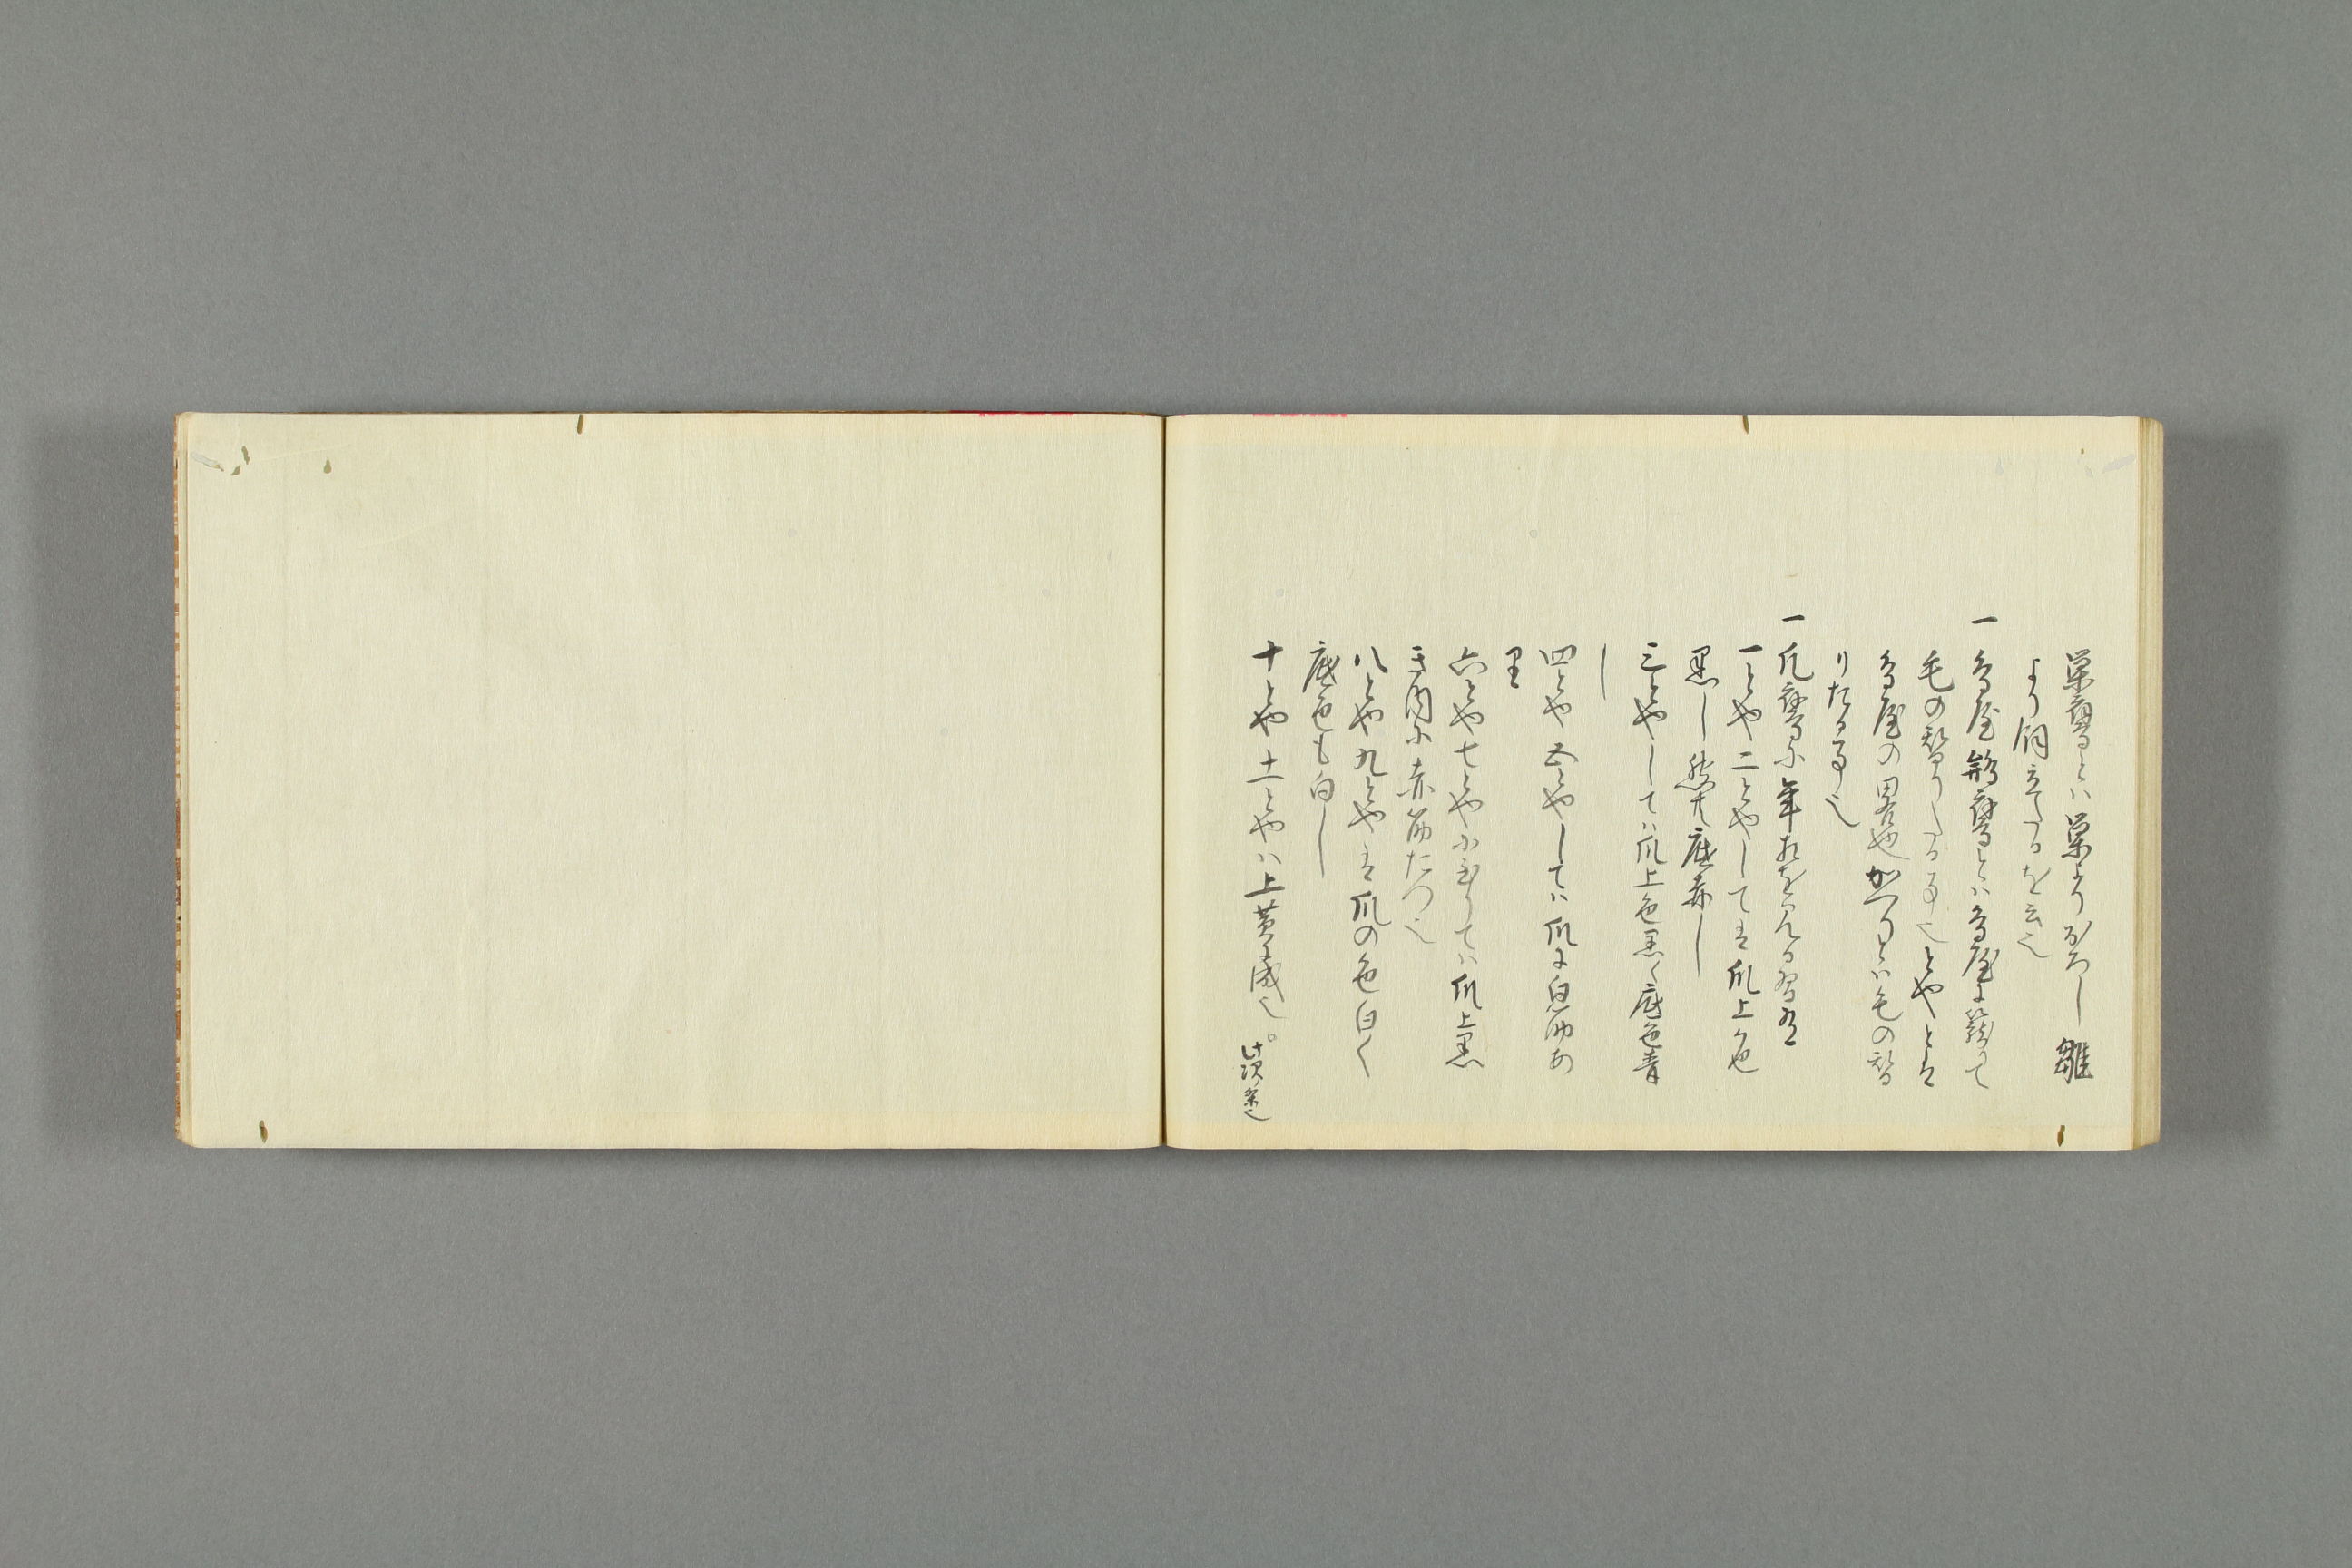 巣鷹とハ巣よりおろし雛
より飼立たるを云也
一鳥屋鷹とハ鳥屋に籠りて
毛の替りたる事也とやとは
鳥屋の畧也かへりとハ毛の替
りたる事也
一爪鷹に年をる習有
一とや二とやしては爪上色
黒し然共底赤し
三とやしてハ爪上色黒く底色青
し
四とや五とやしてハ爪に白筋あ
里
六とや七とやに至りてハ爪上黒
き内に赤筋たつ也
八とや九とやは爪の色白く
底色も白し
十とや十一とやハ上黄に成也